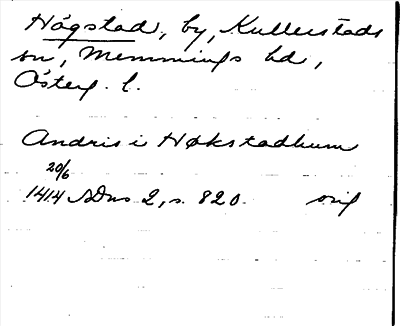 Högstad, by, Kullerstads
sn, Memmings hd,
Österg. l.
Andris i Høkstadhum
20/6
1414 SDns 2, s. 820. orig